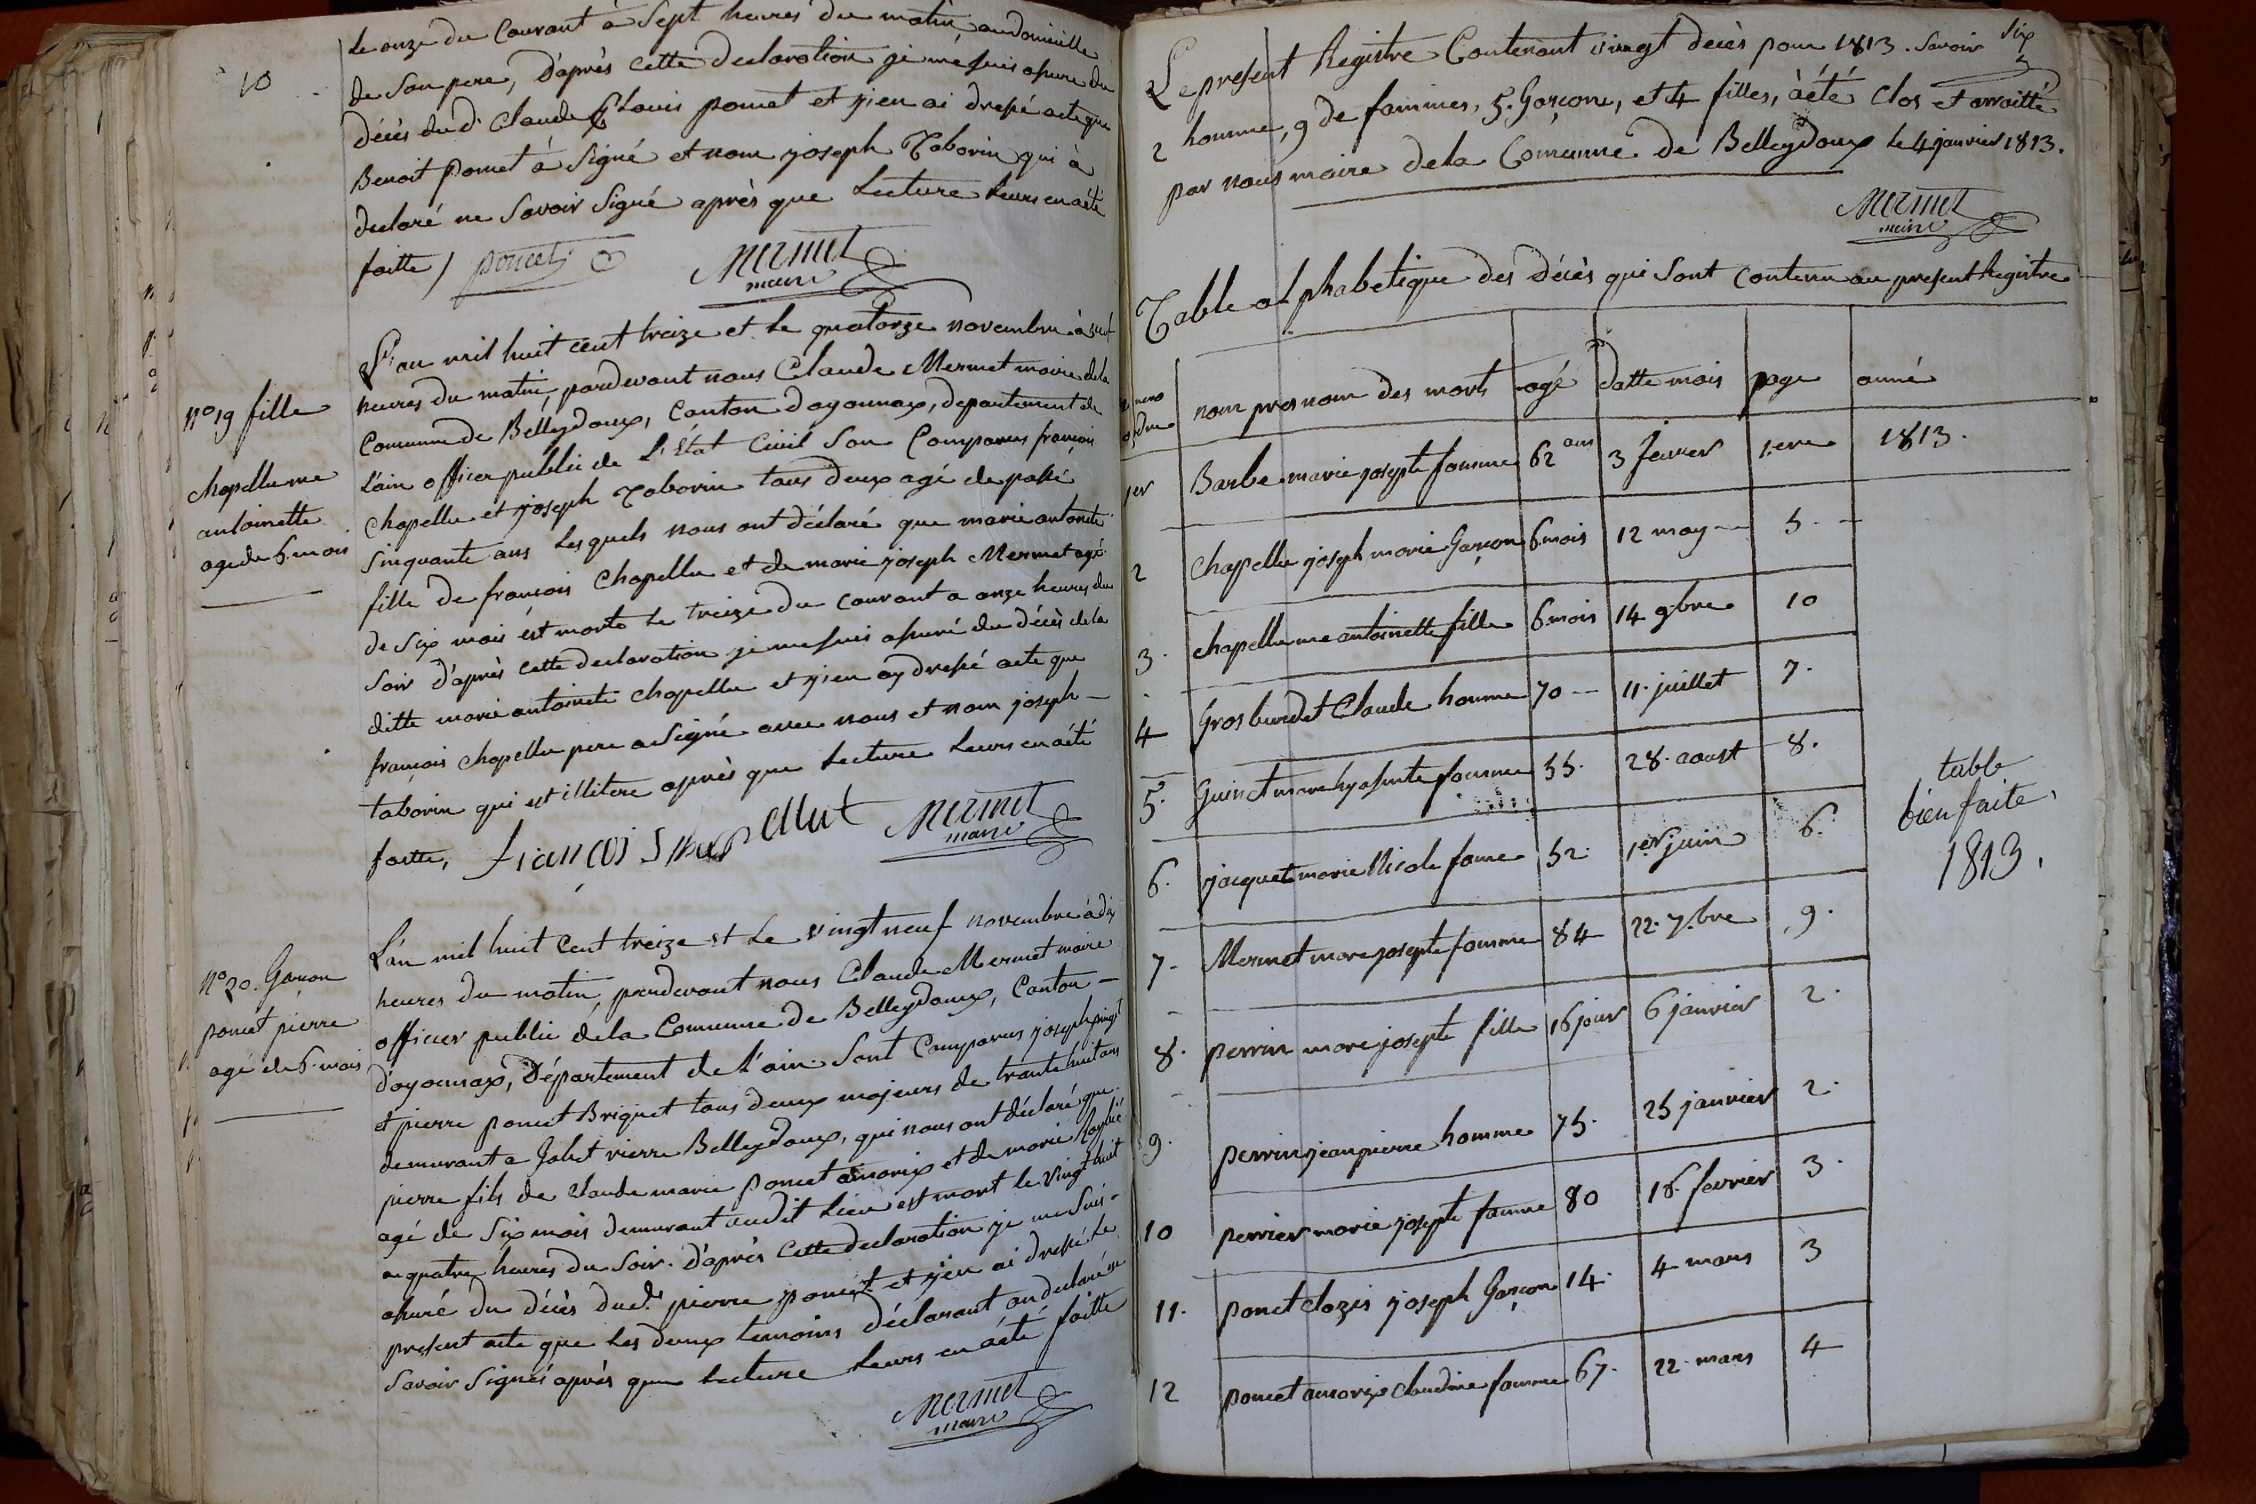 10
Le onze du Courant à Sept heures du matin, au domicille
de Son pere, D'après cette declaration je me suis assure du
décès du d. Claude Louis poncet et j'en ai dressé acte que
Benoit poncet à Signé et non joseph Taborin qui à
declaré ne Savoir Signé après que Lecture Leurs en a été
faitte / poncet Mermet
maire
n° 19 fille
chapellu me
antoinette
age de 6. mois
L'an mil huit cent treize et le quatorze novembre à
heures du matin, pardevant nous Claude Mermet maire de la
Commune de Belleydoux, Canton d'oyonnax, departement de
L'ain officier public de L'Etat Civil Son Comparus françois
chapellu et joseph Taborin tous deux agé de passé
Sinquante ans Lesquels nous ont déclaré que marie antoinete
fille de françois Chapellu et de marie joseph Mermet agé
de Six mois est morte le treize du courant a onze heures du
Soir d'après cette declaration je me suis assuré du décès de la
ditte marie antoinete chapellu et j'en ay dressé acte que
françois chapellu pere a Signé avec nous et non joseph –
taborin qui est illitere après que Lecture Leurs en a été
faitte, françois Mermet
maire
n° 20. Garçon
poncet pierre
agé de 6. mois
L'an mil huit Cent treize et Le vingt neuf novembre à dix
heures du matin, pardevant nous Claude Mermet maire
officier public de la Commune de Belleydoux, Canton –
d'oyonnax, Département de L'ain Sont Comparus joseph
et pierre poncet Briquet tous deux majeurs de trante huit ans
demurant a vierre Belleydoux, qui nous ont déclaré que
pierre fils de Claude marie poncet amorix et de marie
agé de Six mois demurant audit Lieu est mort le Vingt huit
a quatre heures du Soir. D'après Cette declaration je me Suis –
assuré du décès dud. pierre poncet et j'en ai dressé le
present acte que Les deux temoins déclarant on declaré ne
Savoir Signés après que Lecture Leurs en a été faitte
Mermet
maire
Le present Registre Contenant vingt décès pour 1813. Savoir
2 homme, 9 de fammes, 5. Garçons, et 4 filles, à été Clos et arraitté
par nous maire de la Comunne de Belleydoux le 4 janvier 1813.
Mermet
maire
Table alphabetique des Décès qui Sont contenu au present Registre
numero ordre nom presnom des morts agé datte mois page anné
1er Barbe marie josephte famme 62 ans 3 fevrier 1.ere 1813.
2 Chapellu joseph marie Garçon 6. mois 12 may 5. –
3. chapellu me antoinette fille 6. mois 14 9.bre 10
4 Gros burdet Claude homme 70 – 11. juillet 7.
5. Guinet me hyasinte famme 55. 28. aoust 8.
6. jacquet marie Nicole fame 52. 1er juin 6.
7. Mermet marie josephte famme 84 22. 7.bre 9.
8. perrin marie josephte fille 16 jour 6 janvier 2.
9. perrin jean pierre homme 75. 25 janvier 2.
10 perrier marie josephte famme 80 18. fevrier 3.
11. poncet clozis joseph Garçon 14. 4 mars 3
12 poncet amorix claudine famme 67. 22. mars 4
table
bien faite,
1813.